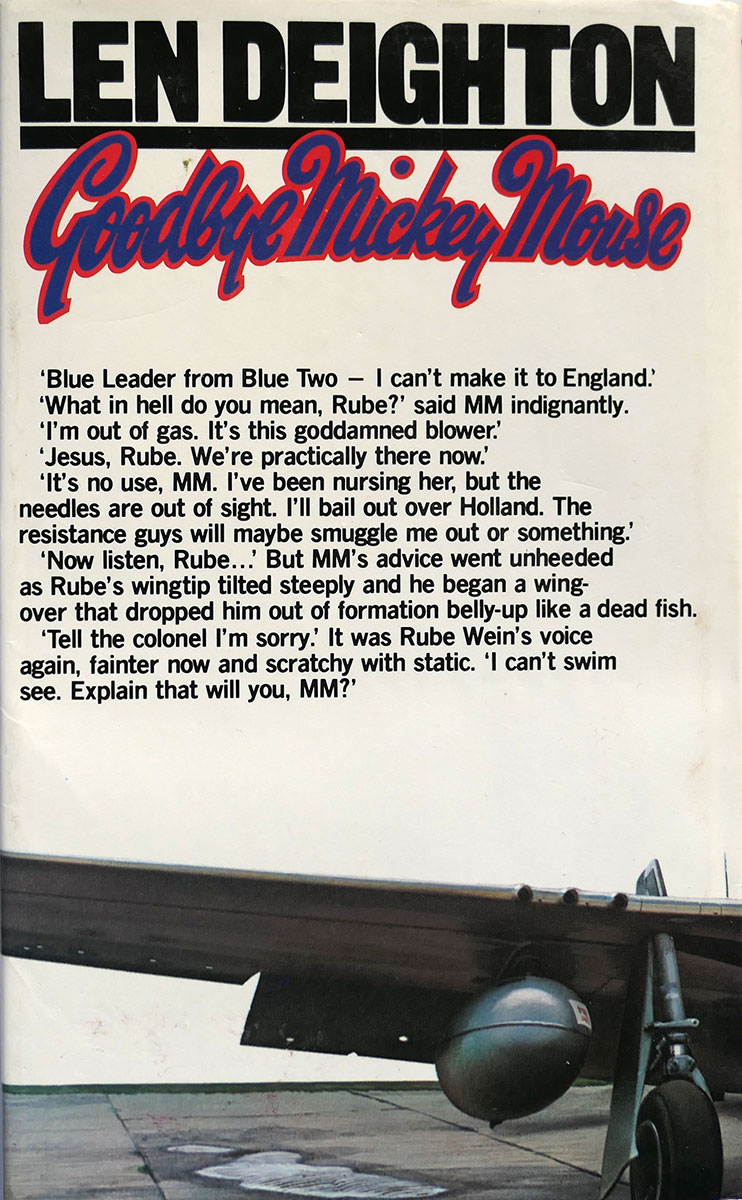 LEN DEIGHTON
Goodbye Mickey Mouse
‘Blue Leader from Blue Two – I can’t make it to England.’
‘What in hell do you mean, Rube?’ said MM indignantly.
‘I’m out of gas. It’s this goddamned blower.’
‘Jesus, Rube. We’re practically there now.’
‘It’s no use, MM. I’ve been nursing her, but the
needles are out of sight. I’ll bail out over Holland. The
resistance guys will maybe smuggle me out or something.’
‘Now listen, Rube...’ But MM’s advice went unheeded
as Rube’s wingtip tilted steeply and he began a wing-
over that dropped him out of formation belly-up like a dead fish.
‘Tell the colonel I’m sorry.’ It was Rube Wein’s voice
again, fainter now and scratchy with static. ‘I can’t swim
see. Explain that will you, MM?’